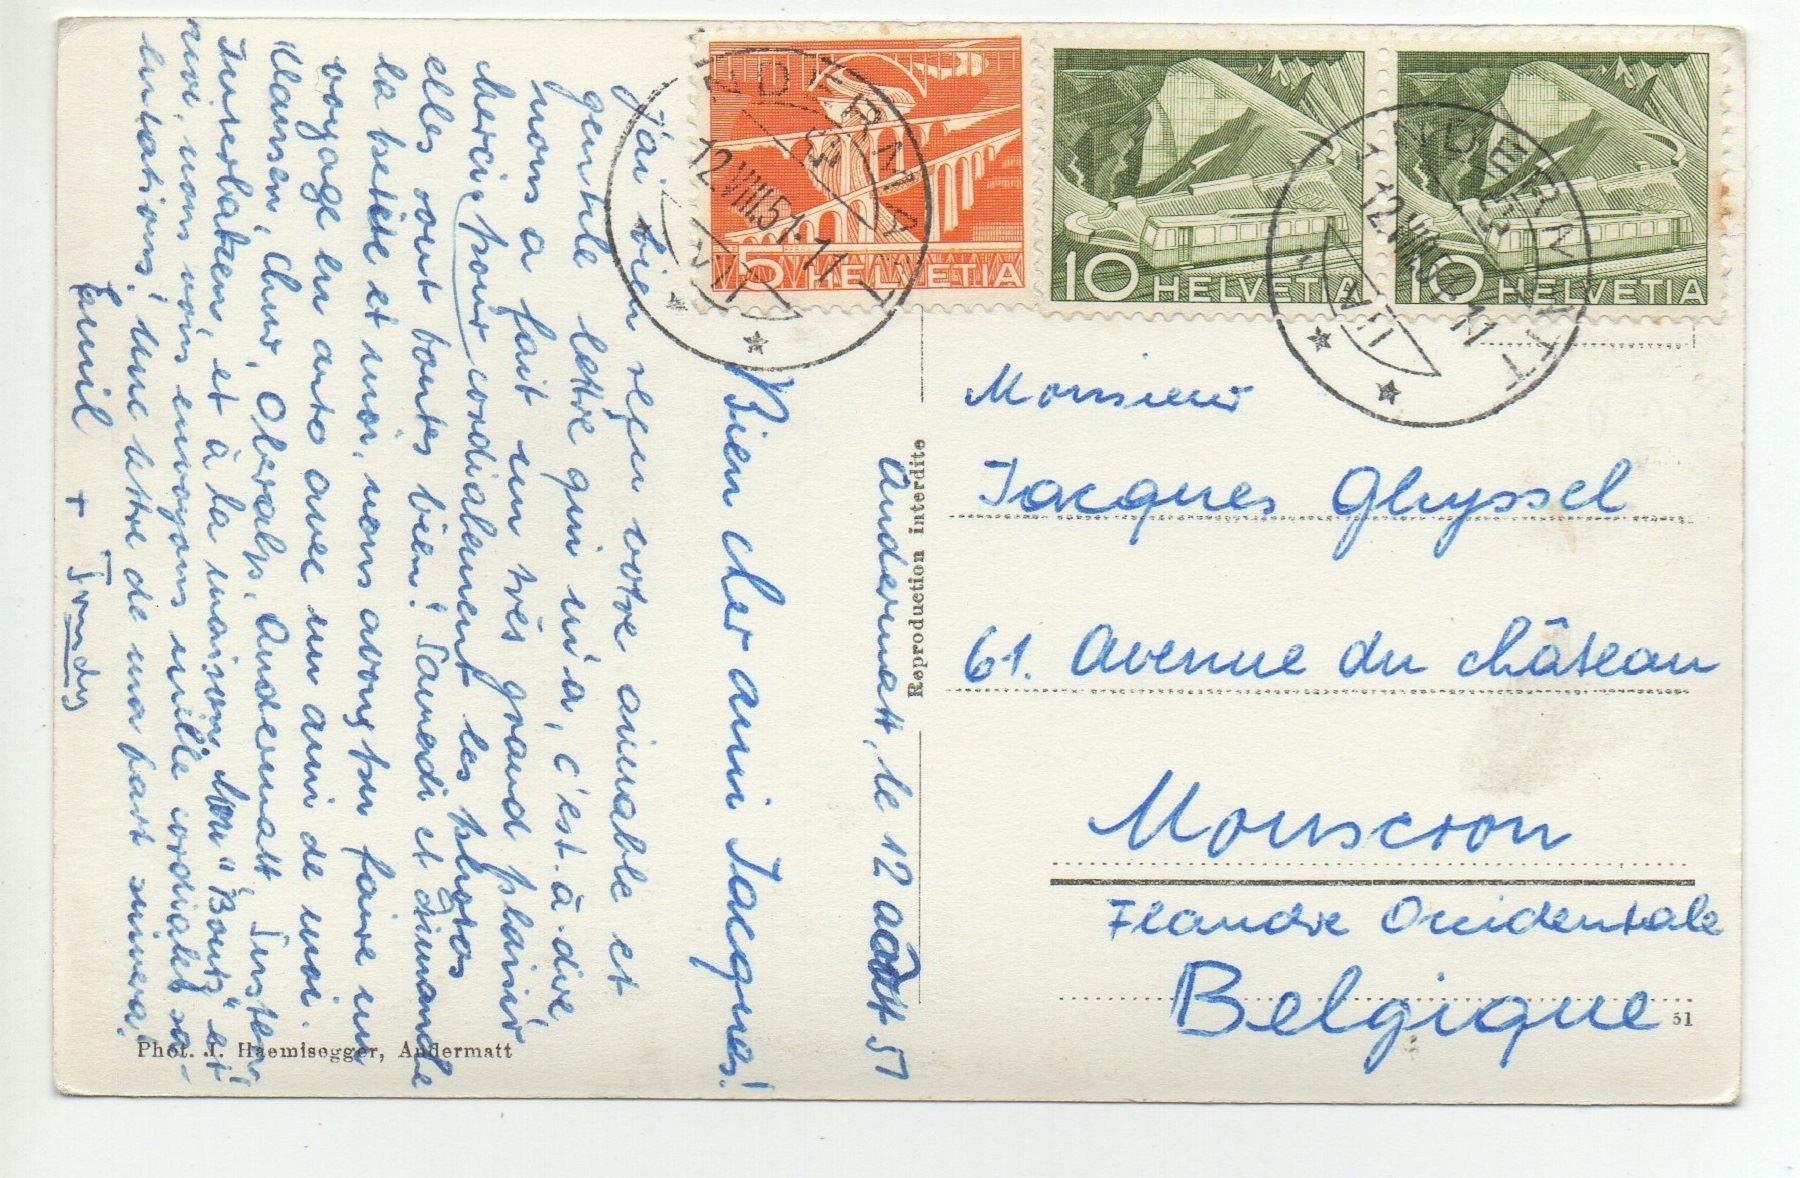 Andermatt, le 12 août 51
Bien cher ami Jacques!
J'ai bien reçu votre aimable et
gentile lettre qui m'a, c'est-à-dire,
nous a fait un très grand plaisir
Merci, pour cordialement les photos
elles sont toutes bien! Samedi et dimanche
la et moi, nous avons pu faire un
voyage en auto avec un ami de moi.
Klausen, Chur, Oberalp, Andermatt, Susten,
Interlaken, et à la maison. "Boutz" et
nous vous envoyons mille cordiales sa-
lutations! Une lettre de ma part suivra!
Emil + Trudy
Phot. J. Haemisegger, Andermatt
Reproduction interdite
5 HELVETIA
10 HELVETIA
10 HELVETIA
ANDERMATT
12.VIII.51.-11
ANDERMATT
12.VIII.51.-11
Monsieur
Jacques Ghyssel
61. Avenue du château
Mouscron
Flandre Occidentale
Belgique
51